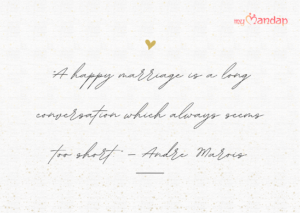 my Mandap
'A happy marriage is a long
conversation which always seems
too short' – Andre Marois